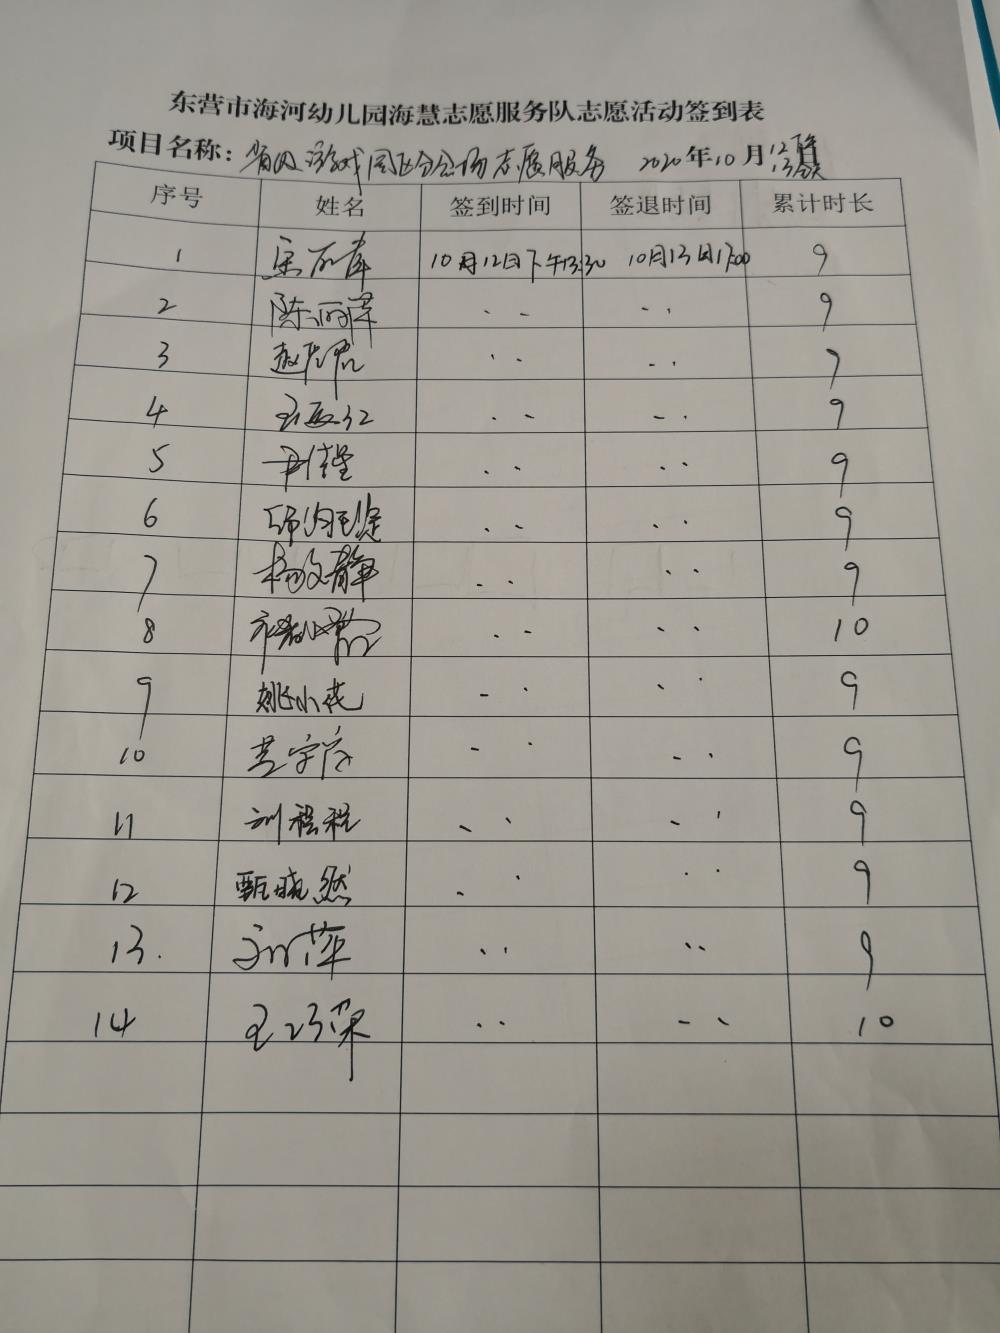 东营市海河幼儿园海慧志愿服务队志愿活动签到表
项目名称：省级游戏园区分会场志愿服务 2020年10月12下午 13全天日
序号 姓名 签到时间 签退时间 累计时长
1 10月12日下午13:30 10月13日17:00 9
2 陈丽萍 〃 〃 9
3 〃 〃 9
4 王 〃 〃 9
5 尹佳 〃 〃 9
6 〃 〃 9
7 杨文静 〃 〃 9
8 〃 〃 10
9 姚小花 〃 〃 9
10 〃 〃 9
11 刘程程 〃 〃 9
12 甄晓然 〃 〃 9
13. 刘萍 〃 〃 9
14 王巧荣 〃 〃 10